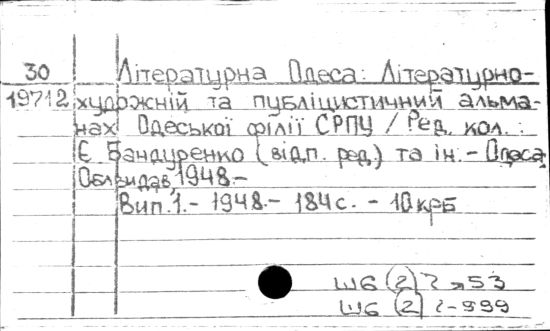 30 Літературна Одеса: Літературно-
19712 художній та публіцистичний альма-
нах Одеської філії СРПУ / Ред. кол.:
Є. Бандуренко (відп. ред.) та ін. - Одеса
Облвидав, 1948. -
Вип. 1. - 1948. - 184 с. - 10 крб
Ш6 (2)
Ш6 (2)